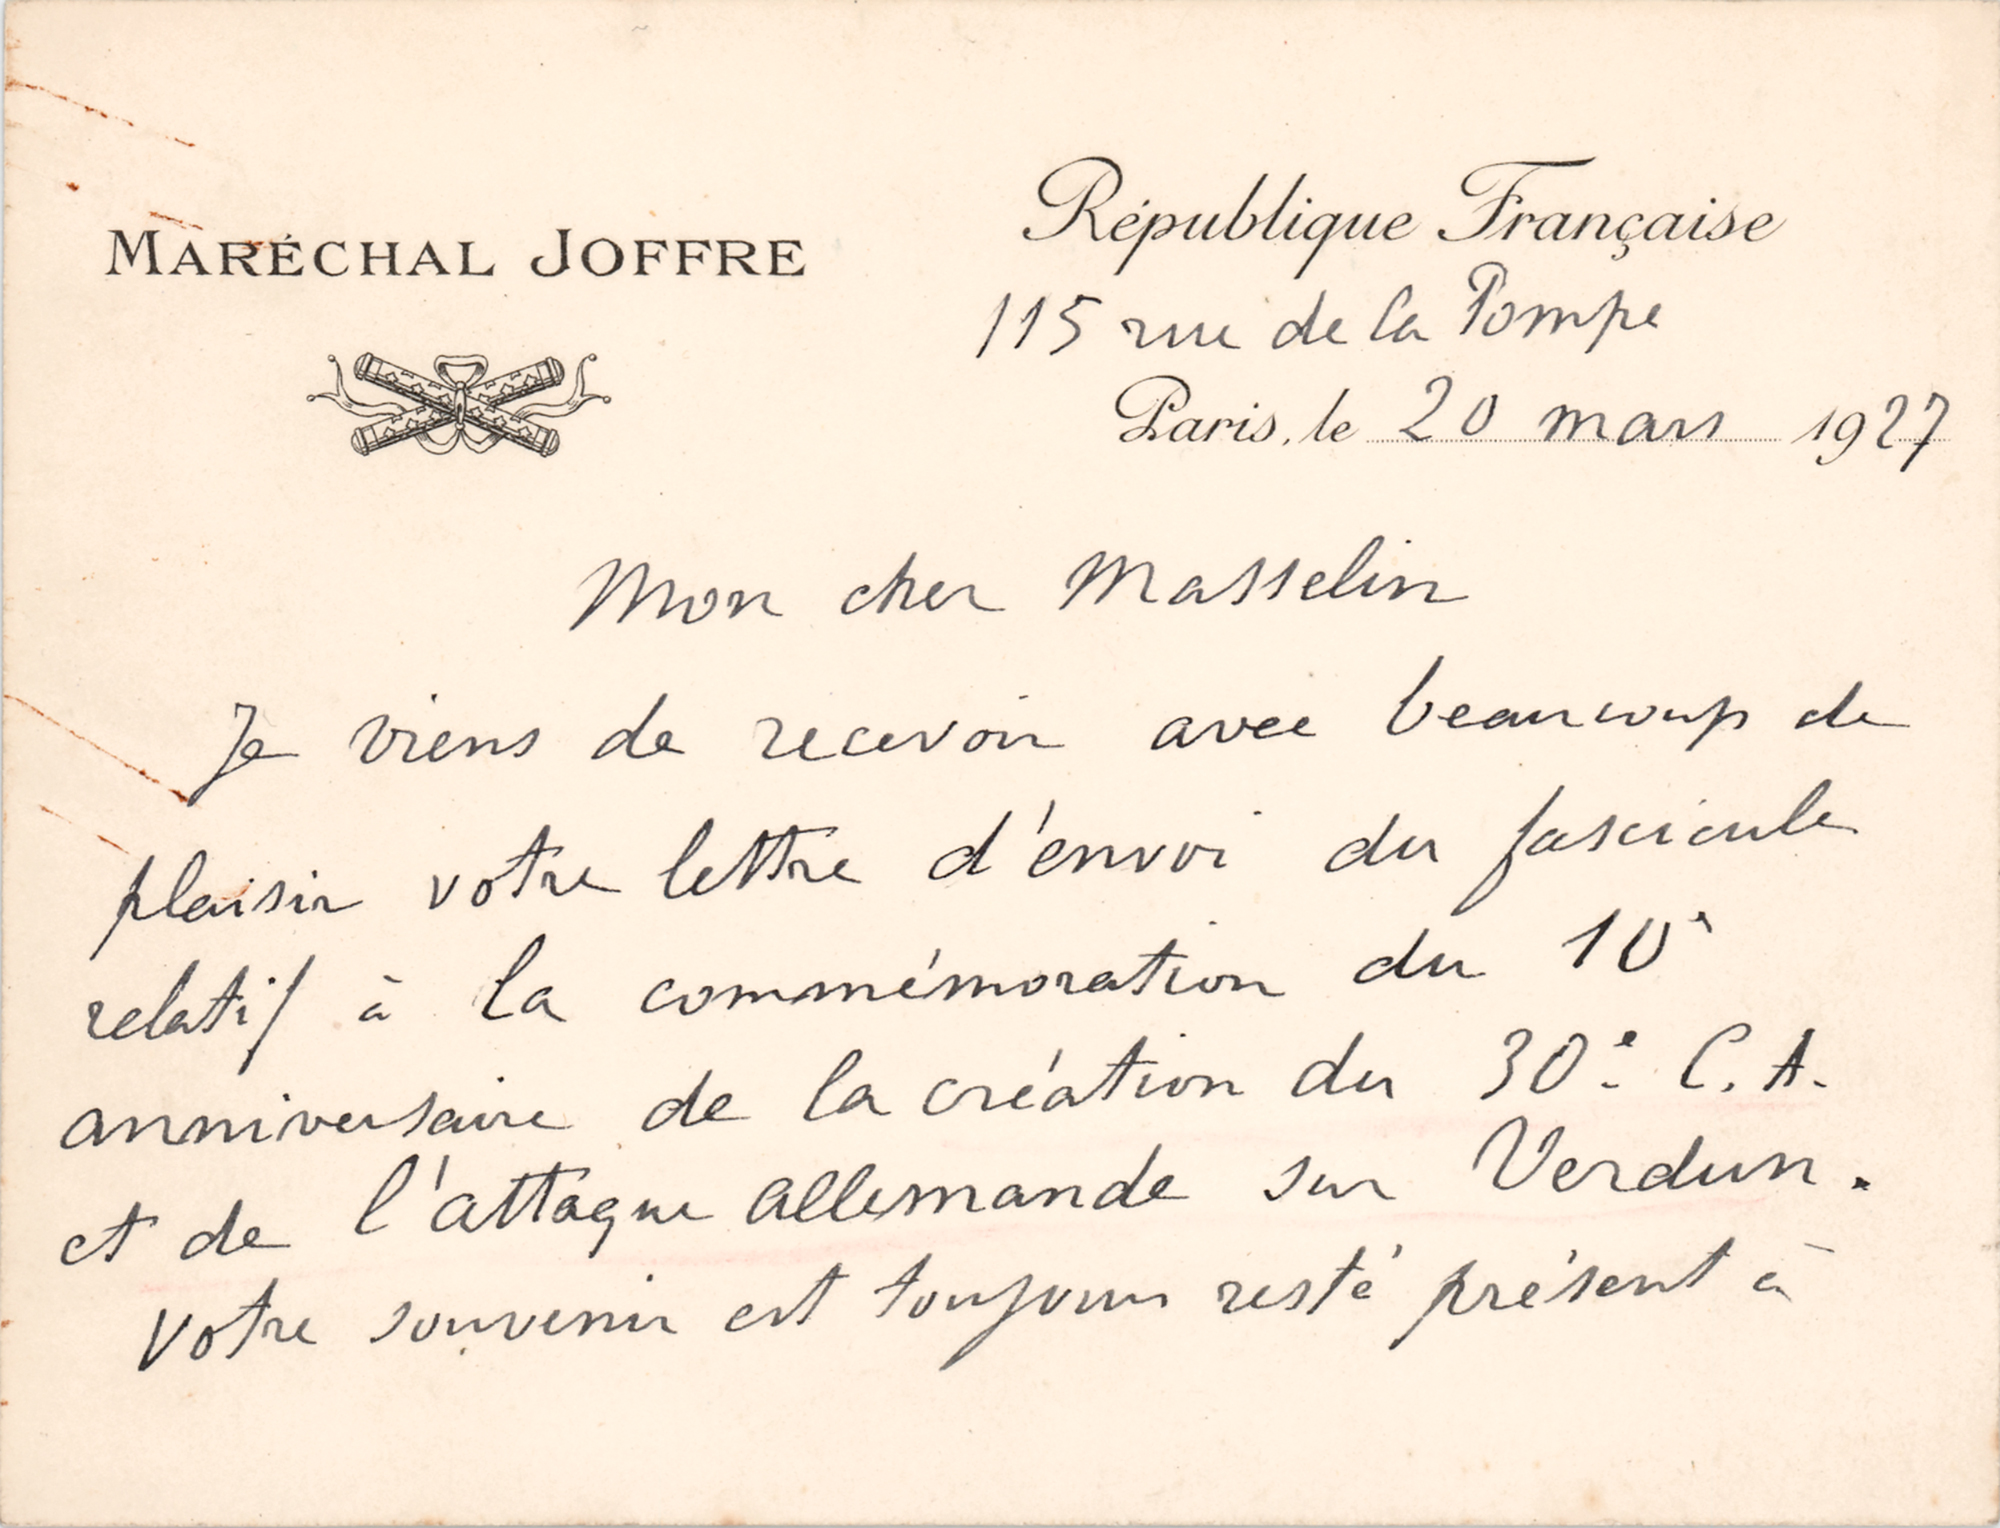 MARÉCHAL JOFFRE
République Française
115 rue de la Pompe
Paris, le 20 mars 1927
Mon cher Masselin
Je viens de recevoir avec beaucoup de
plaisir votre lettre d'envoi du fascicule
relatif à la commémoration du 10e
anniversaire de la création du 30e C. A.
et de l'attaque allemande sur Verdun.
Votre souvenir est toujours resté présent à